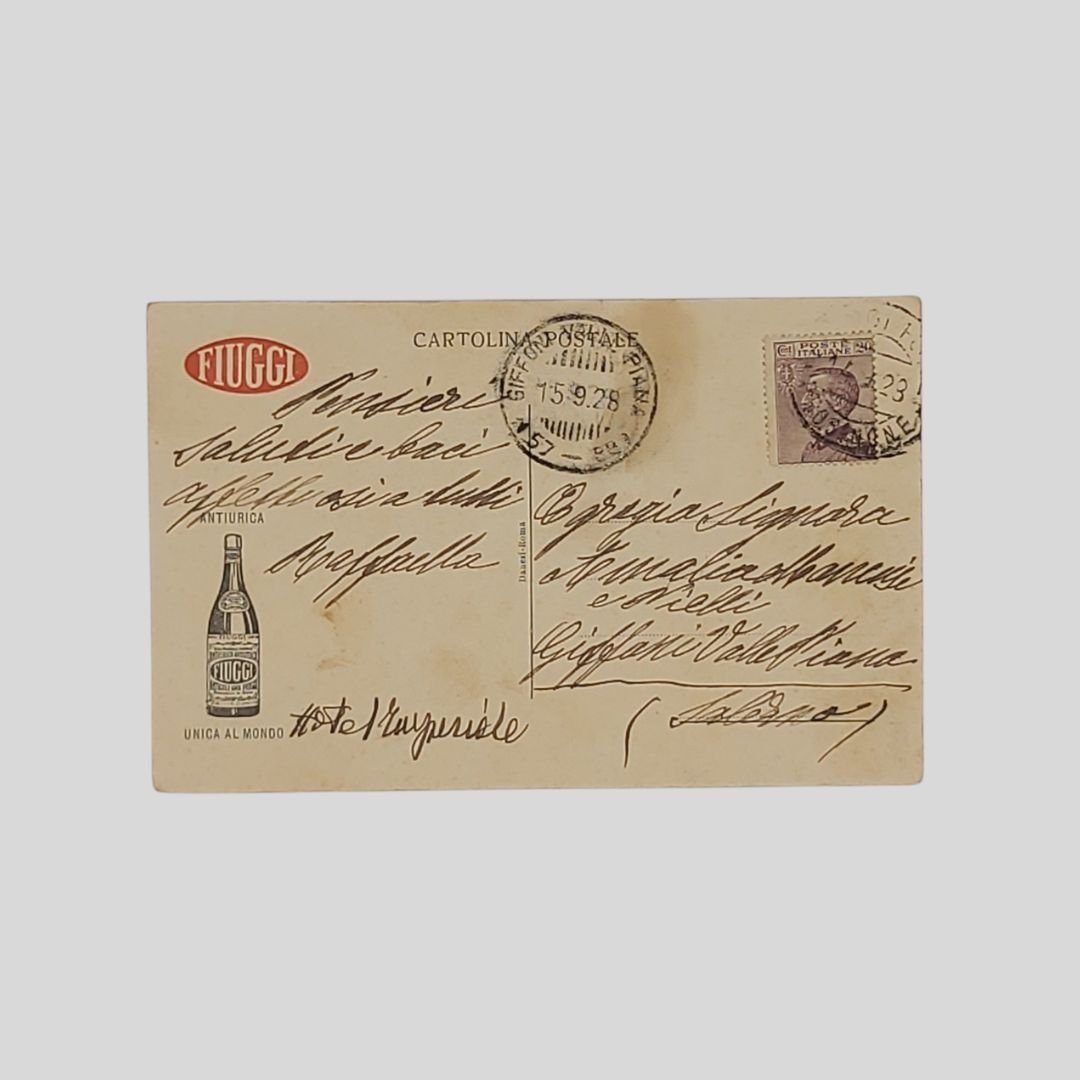 CARTOLINA POSTALE
FIUGGI
Pensieri
saluti e baci
affettuosi a tutti
Raffaella
ANTIURICA
FIUGGI
FIUGGI
UNICA AL MONDO
Hotel Imperiale
Danesi-Roma
GIFFONI VALLE PIANA
15.9.28
Cent 20
POSTE
ITALIANE
Egregia Signora
Amalia
e Nielli
Giffoni Valle Piana
(Salerno)